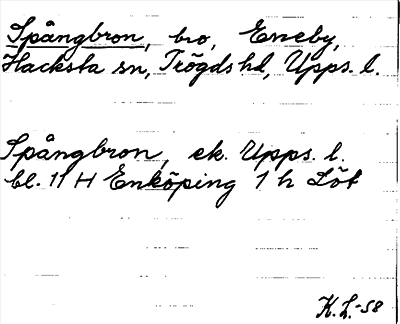 Spångbron, bro, Eneby,
Hacksta sn, Trögds hd, Upps. l.
Spångbron, ek. Upps. l.
bl. 11 H Enköping 1 h Löt
K.L.-58